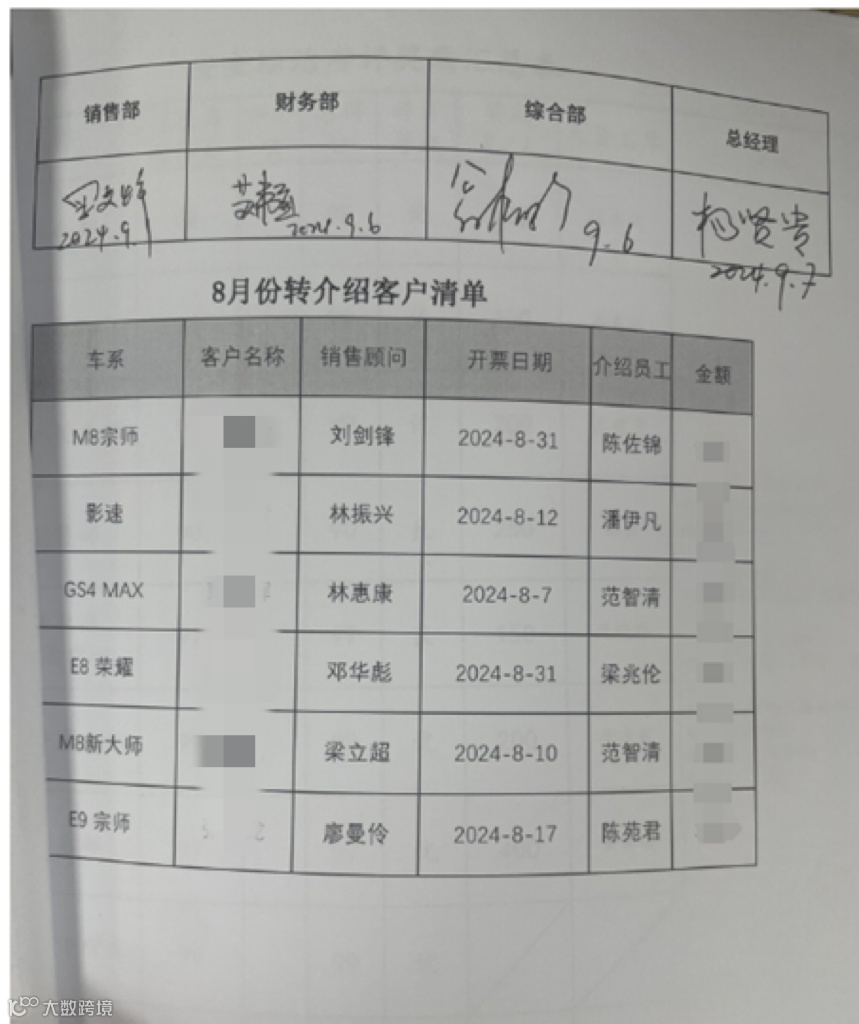 销售部 财务部 综合部 总经理
2024.9. 2024.9.6 9.6 杨贤贵
2024.9.7
8月份转介绍客户清单
车系 客户名称 销售顾问 开票日期 介绍员工 金额
M8宗师 刘剑锋 2024-8-31 陈佐锦
影速 林振兴 2024-8-12 潘伊凡
GS4 MAX 林惠康 2024-8-7 范智清
E8 荣耀 邓华彪 2024-8-31 梁兆伦
M8新大师 梁立超 2024-8-10 范智清
E9 宗师 廖曼伶 2024-8-17 陈苑君
大数跨境